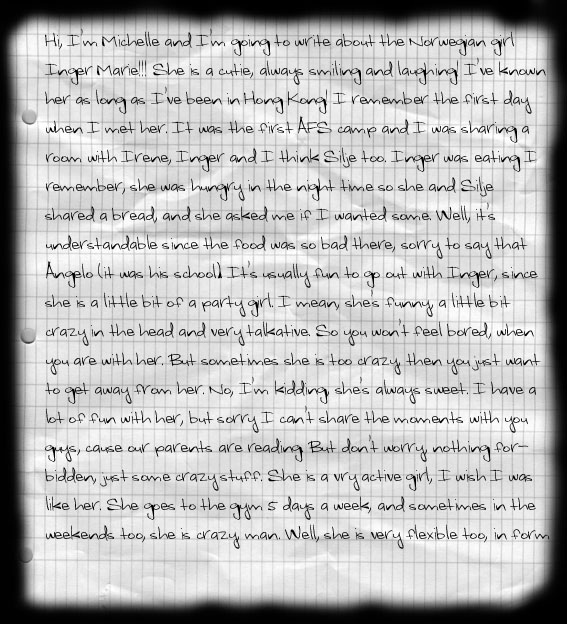 Hi, I'm Michelle and I'm going to write about the Norwegian girl
Inger Marie!!! She is a cutie, always smiling and laughing! I've known
her as long as I've been in Hong Kong! I remember the first day
when I met her. It was the first AFS camp and I was sharing a
room with Irene, Inger and I think Silje too. Inger was eating I
remember, she was hungry in the night time so she and Silje
shared a bread, and she asked me if I wanted some. Well, it's
understandable since the food was so bad there, sorry to say that
Angelo (it was his school) It's usually fun to go out with Inger, since
she is a little bit of a party girl. I mean, she's funny, a little bit
crazy in the head and very talkative. So you won't feel bored, when
you are with her. But sometimes she is too crazy, then you just want
to get away from her. No, I'm kidding, she's always sweet. I have a
lot of fun with her, but sorry I can't share the moments with you
guys, cause our parents are reading. But don't worry, nothing for-
bidden, just some crazy stuff. She is a vry active girl, I wish I was
like her. She goes to the gym 5 days a week, and sometimes in the
weekends too, she is crazy man. Well, she is very flexible too, in form